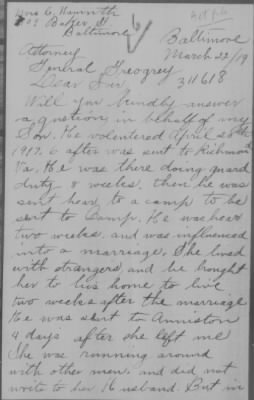 Baltimore
Baltimore
March 22/19
Attorney
General Greogrey
311618
Dear Sir
Will you kindly answer
a question in behalf of my
Son. He volentered April
1917. & after was sent to Richmond
Va. He was there doing guard
duty 8 weeks. then he was
sent hear, to a camp to be
sent to Camp. He was hear
two weeks, and was influenced
into a marriage. She lived
with strangers, and he brought
her to his home to live
two weeks after the marriage
He was sent to Anniston
4 days after she left me
She was running around
with other men. and did not
write to her Husband. But in